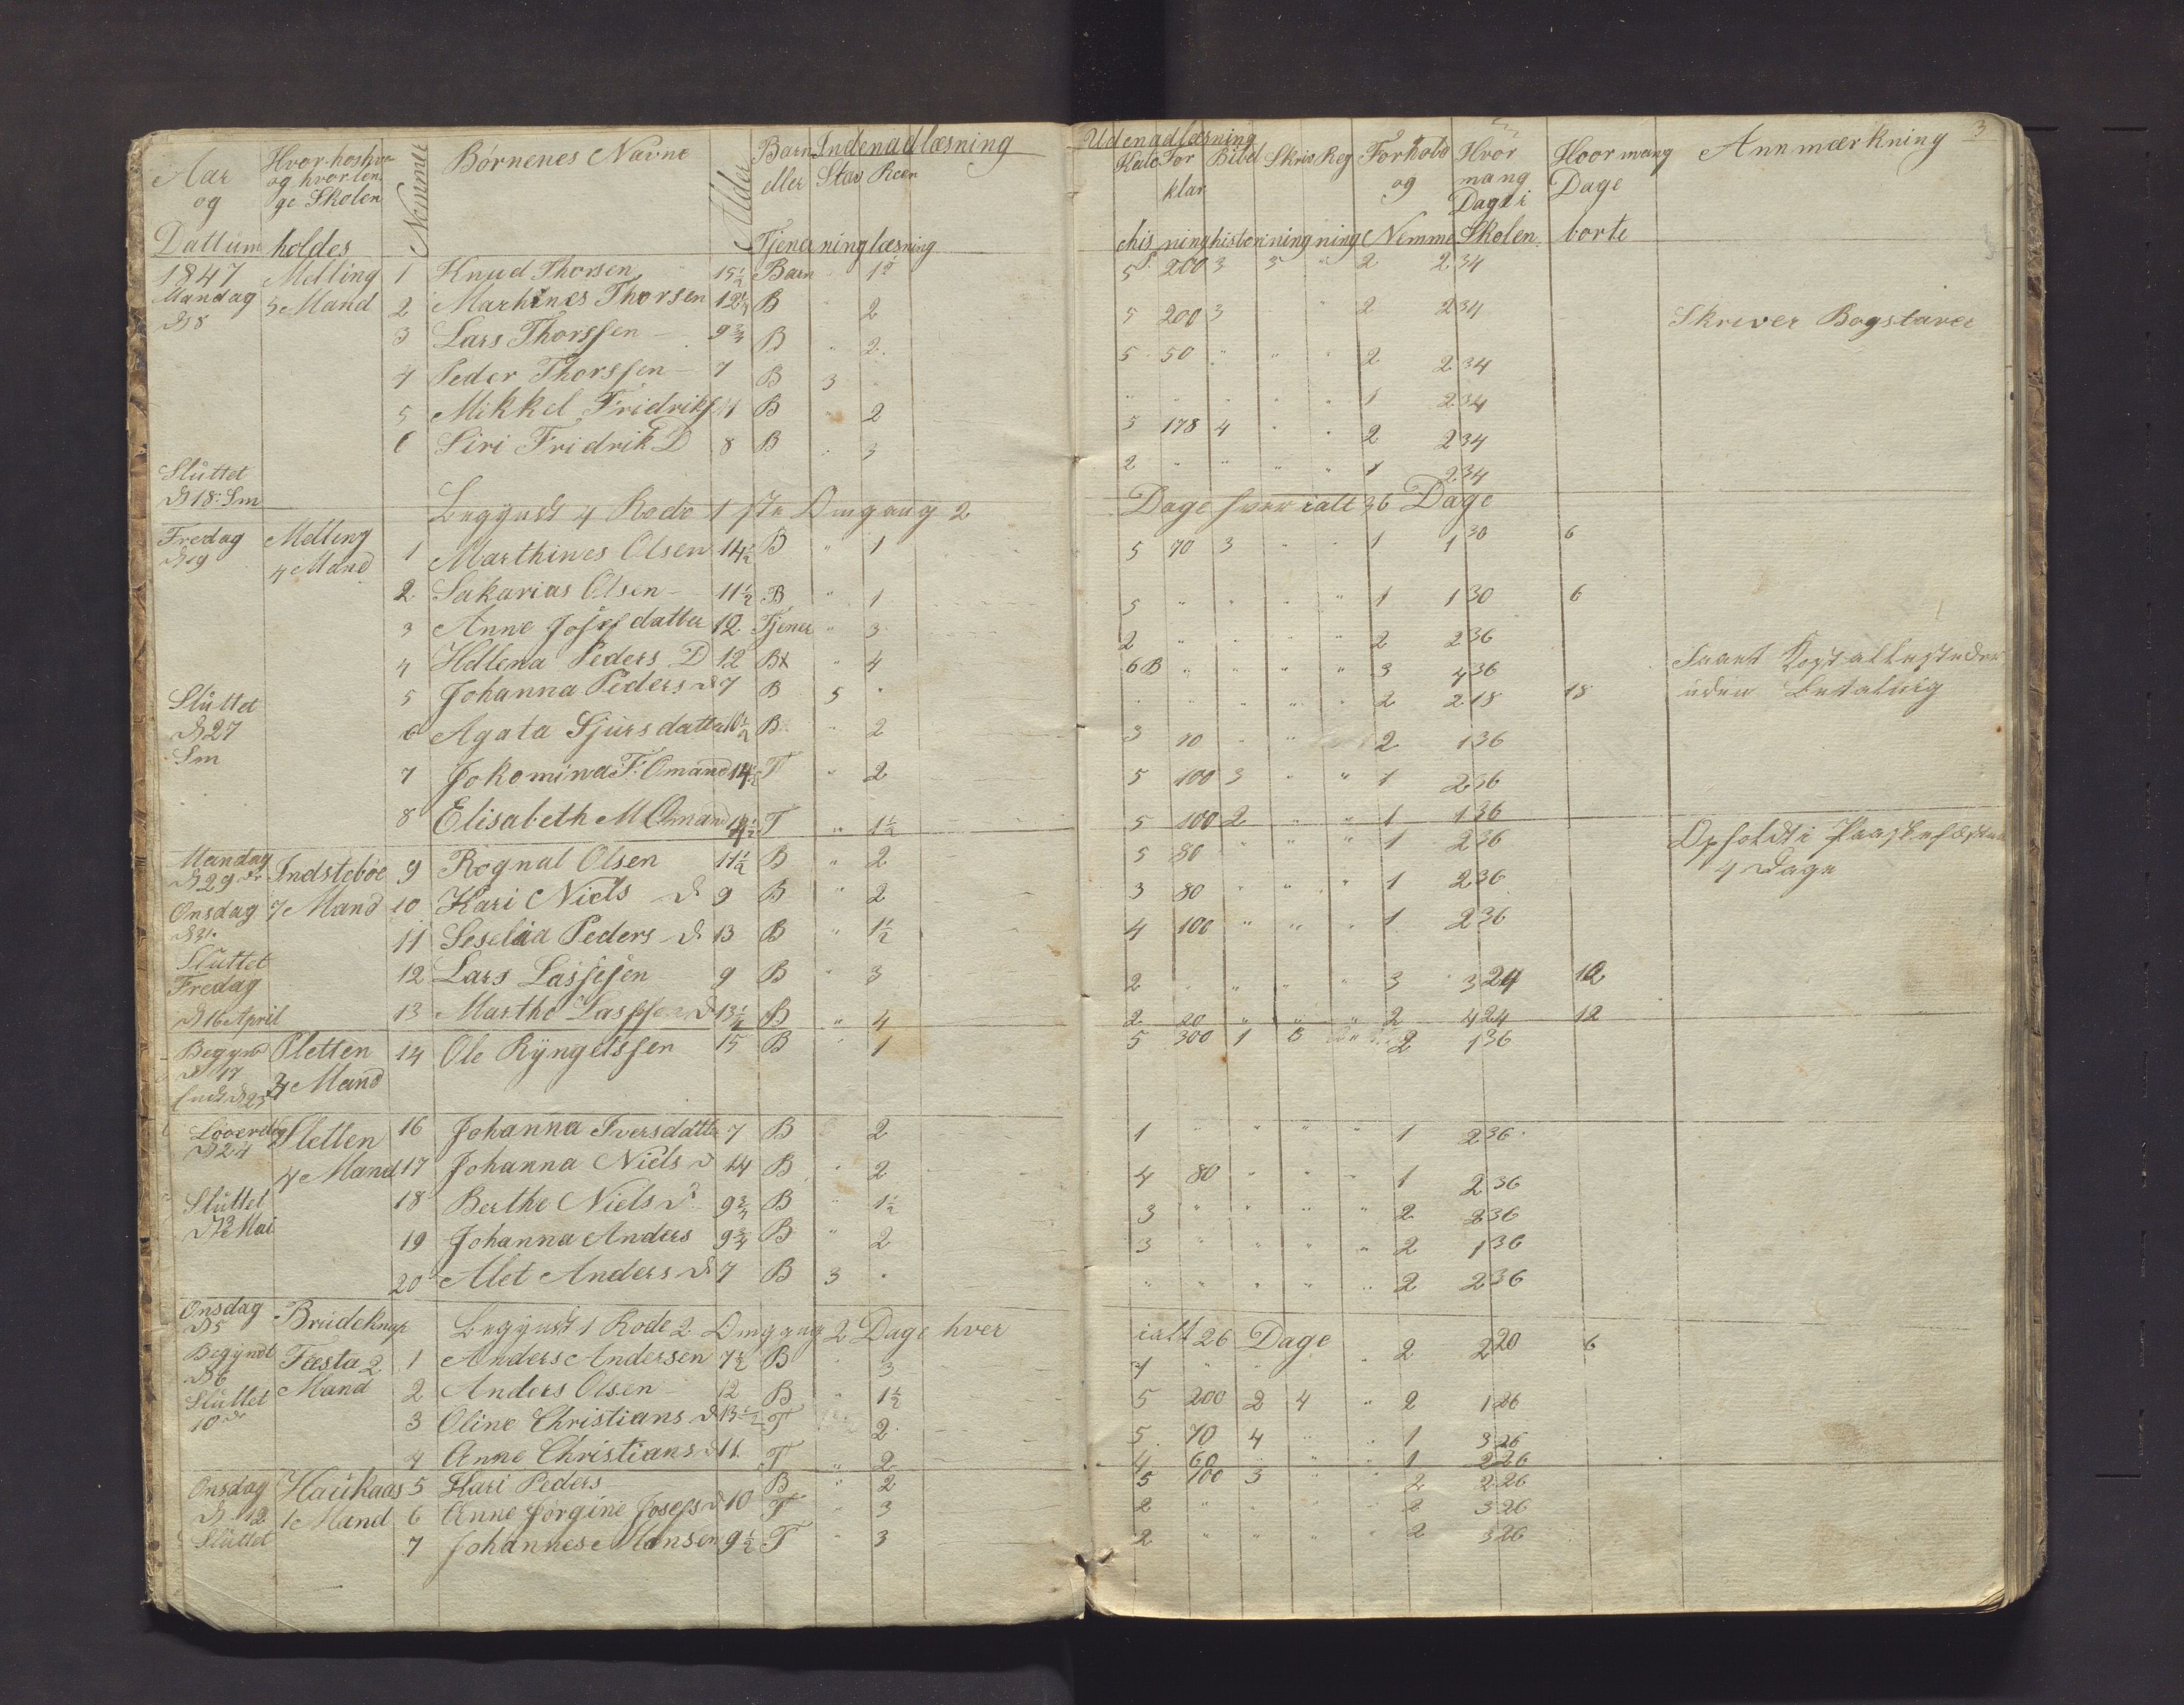 Aar og Dattum | Hvor hoshvo og hvorlen ge Skolen holdes | Nommer | Børnenes Navne | Alder | Barn eller Tjener | Indenadlæsning Stav ning | Reen læsning | Udenadlæsning Kate chis | For klar ning | Bibel histori | Skriv ning | Reg ning | Forhold og Nemme | Hvor mang Dage i Skolen | Hvor mang Dage borte | Annmærkning 3
1847 Melling 1 Knud Thorsen 15½ Barn " 1½ 5 200 3 3 " 2 2 34
Mandag D 8 3 Mand 2 Marthines Thorsen 12¾ B " 2 5 200 3 " 2 2 34 Skriver Bogstaver
3 Lars Thorssen 9¾ B " 2 5 50 " " " 2 2 34
4 Peder Thorssen 7 B 3 " " " " " " 1 2 34
5 Mikkel Fridriks 11 B " 2 5 178 4 " " 2 2 34
6 Siri Fridrik D 8 B " 3 2 " " " " 1 2 34
Sluttet D 18: Sm
Begyndt 4 Rode 1ste Omgang 2 Dage hver ialt 36 Dage
Fredag D 19 Melling 4 Mand 1 Marthines Olsen 14½ B " 1 5 70 3 " " 1 1 30 6
2 Sakarias Olsen 11½ B " 1 5 " " " " 1 1 30 6
3 Anne Josefsdatter 12 Tjener " 3 2 " " " " 2 2 36
4 Hellena Peders D 12 B " 4 6B " " " " 3 4 36 Kost allesteder
5 Johanna Peders D 7 B 5 " " " " " " 2 2 18 18 uden Betalnig
Sluttet D 27 Sm
6 Agata Sjursdatter 10½ B " 2 3 10 " " 2 1 36
7 Jokomina T. Omand 14½ T " 2 5 100 3 " " 1 2 36
8 Elisabeth M Omand 14½ T " 1½ 5 100 2 " " 1 1 36
Mandag D 29 Indstebøe 9 Rognal Olsen 11½ B " 2 5 80 " " " 1 2 36 Opholdt i Paaskefæsten
Onsdag D 31. 7 Mand 10 Kari Niels D 9 B " 2 3 80 " " " 1 2 36 4 Dage
11 Seselia Peders D 13 B " 1½ 4 100 " " " 1 2 36
Sluttet Fredag 12 Lars Lassesen 9 B " 3 2 " " " " 3 3 24 12
D 16 April 13 Marthe D 13½ B " 4 2 20 " " " 2 4 24 12
Begynd D 17 Sletten 4 Mand 14 Ole Ryngelssen 15 B " 1 5 300 1 2 1 36
Løverdag D 24 Sletten 16 Johanna Iversdatter 7 B 2 1 " " " " 1 2 36
4 Mand 17 Johanna Niels D 14 B " 2 4 80 " " " 1 2 36
Sluttet 18 Berthe Niels D 9¾ B " 1½ 3 " " " " 2 2 36
Mai 19 Johanna Anders 9¾ B " 2 3 " " " " 2 1 36
20 Alet Anders D 7 B 3 " " " " " " 2 2 36
Onsdag D 5 Brudeknap Begyndt 1 Rode 2 Omgang 2 Dage hver ialt 26 Dage
Begyndt D 6 Fæsta 2 1 Anders Andersen 7½ B " 3 1 " " 2 2 20 6
Sluttet 10de Mand 2 Anders Olsen 12 B " 1½ 5 200 2 4 " 2 1 26
3 Oline Christians D 13½ T 2 5 70 4 " " 1 3 26
4 Anne Christians D 11 T " 2 4 60 " " 1 2 26
Onsdag Haukaas 5 Kari Peders B " 2 5 100 3 " " 2 2 26
D 12 1 Mand 6 Anne Jørgine Josefs D 10 T " 3 2 " " " " 2 3 26
Sluttet 7 Johannes Monsen 9½ T " 3 2 " " " " 2 3 26